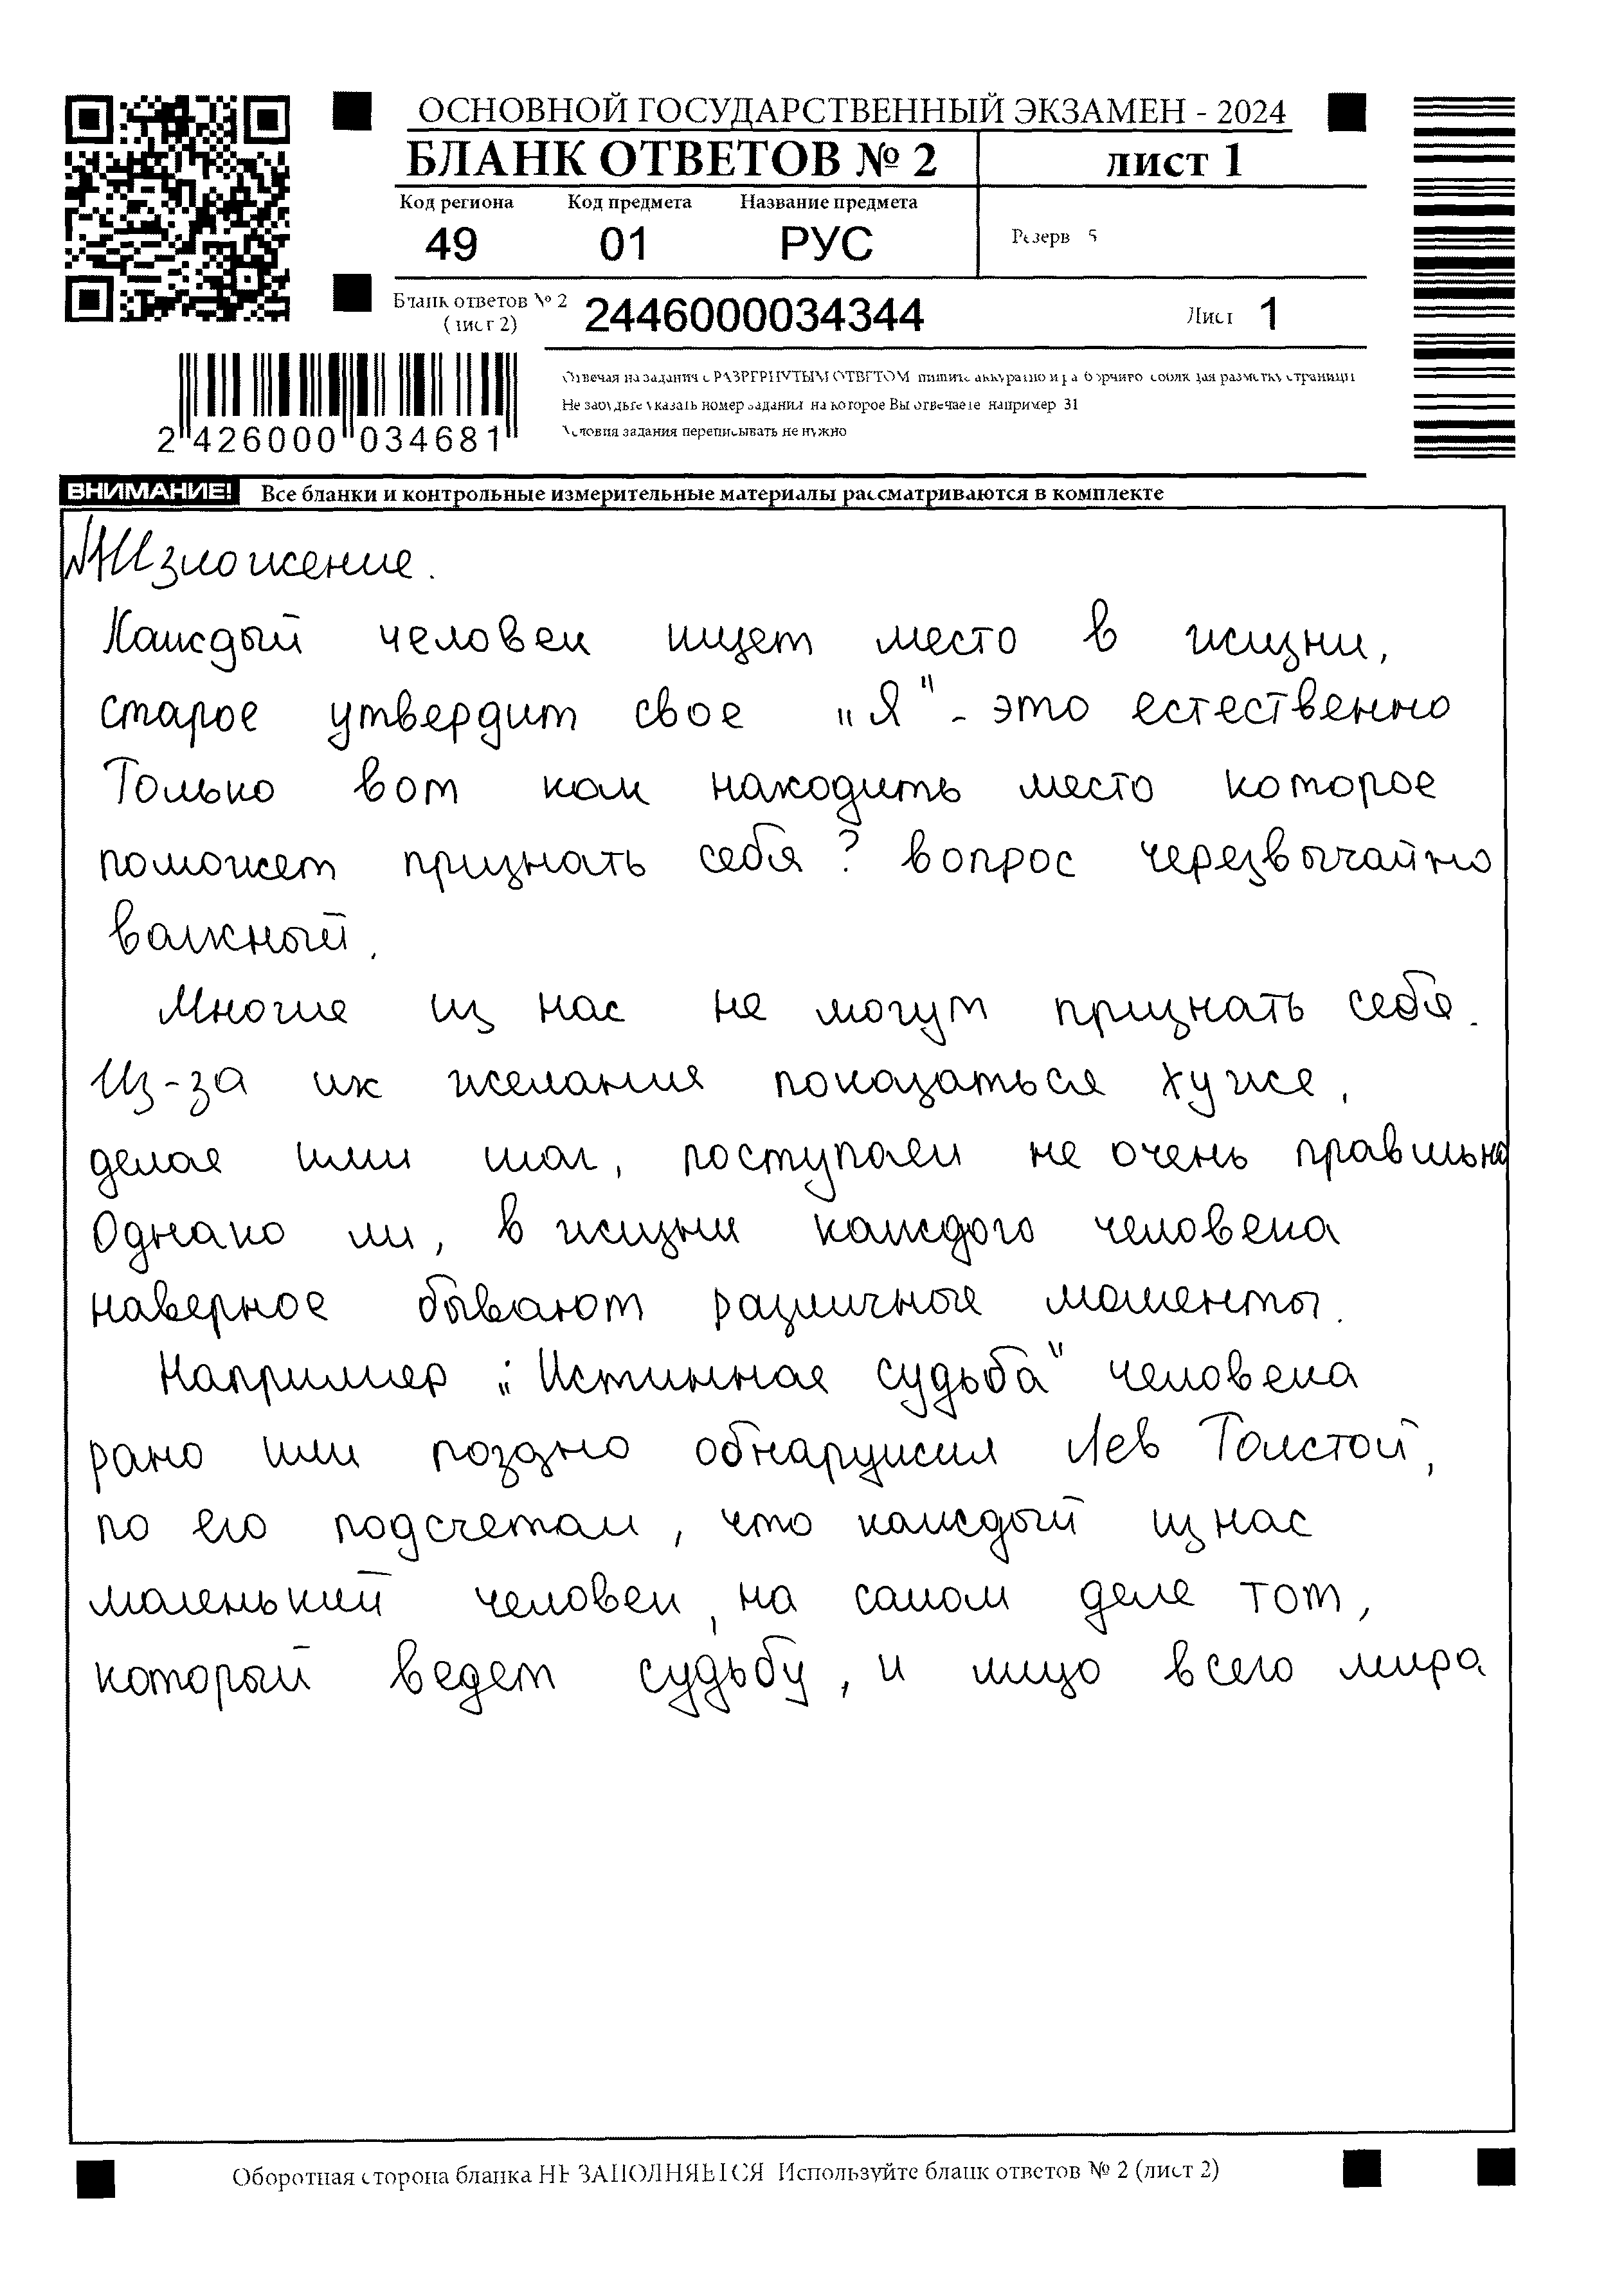 ОСНОВНОЙ ГОСУДАРСТВЕННЫЙ ЭКЗАМЕН - 2024
БЛАНК ОТВЕТОВ № 2 лист 1
Код региона Код предмета Название предмета
49 01 РУС Резерв 5
Бланк ответов № 2 (лист 2) 2446000034344 Лист 1
Отвечая на задания с РАЗВЕРНУТЫМ ОТВЕТОМ пишите аккуратно и разборчиво соблюдая разметку страницы
Не забудьте указать номер задания на которое Вы отвечаете например 31
Условия задания переписывать не нужно
2 426000 034681
ВНИМАНИЕ! Все бланки и контрольные измерительные материалы рассматриваются в комплекте
№1 Изложение.
Каждый человек ищет место в жизни,
старое утвердит свое „Я" - это естественно
Только вот как находить место которое
поможет признать себя? вопрос черезвычайно
важный.
Многие из нас не могут признать себя.
Из-за их желания показаться хуже,
делая или шаг, поступаем не очень правильно
Однако ли, в жизни каждого человека
наверное бывают различные моменты.
Например „Истинная судьба" человека
рано или поздно обнаружил Лев Толстой,
по его подсчетам, что каждый из нас
маленький человек, на самом деле тот,
который ведет судьбу, и лицо всего мира
Оборотная сторона бланка НЕ ЗАПОЛНЯЕТСЯ Используйте бланк ответов № 2 (лист 2)